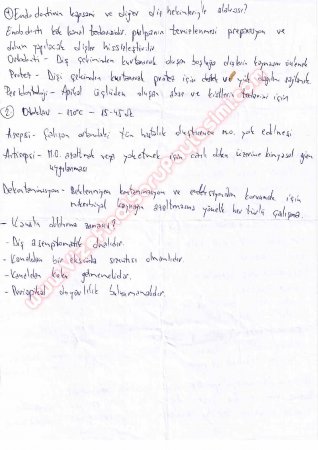 ① Endodontinin kapsamı ve diğer diş hekimleriyle alakası?
Endodonti kök kanal tedavisidir. pulpanın temizlenmesi preperasyon ve
dolum yapılacak dişler hissizleştirilir.
Ortodonti - Diş çekiminden kurtararak oluşan boşluğa dişlerin kaymasını önlemek
Protez - Dişi çekimden kurtararak protez için destek ve yük dağılımı sağlamak
Periodontoloji - Apikal üçlüden oluşan abse ve kistlerin tedavisi için
② Otoklav - 130°C - 15-45 dk
Asepsi - Çalışan ortamdaki tüm hastalık oluşturucu m.o. yok edilmesi
Antisepsi - M.O. azaltmak veya yok etmek için canlı doku üzerine kimyasal ajan
uygulanması
Dekontaminasyon - Beklenmeyen kontaminasyon ve enfeksiyondan korunmak için
mikrobiyal kaynağın azaltmasına yönelik her türlü çalışma.
- Kanala doldurma zamanı?
- Diş asemptomatik olmalıdır.
- Kanaldan bir eksuda sızıntısı olmamalıdır.
- Kanaldan koku gelmemelidir.
- Periapikal duyarlılık bulunmamalıdır.